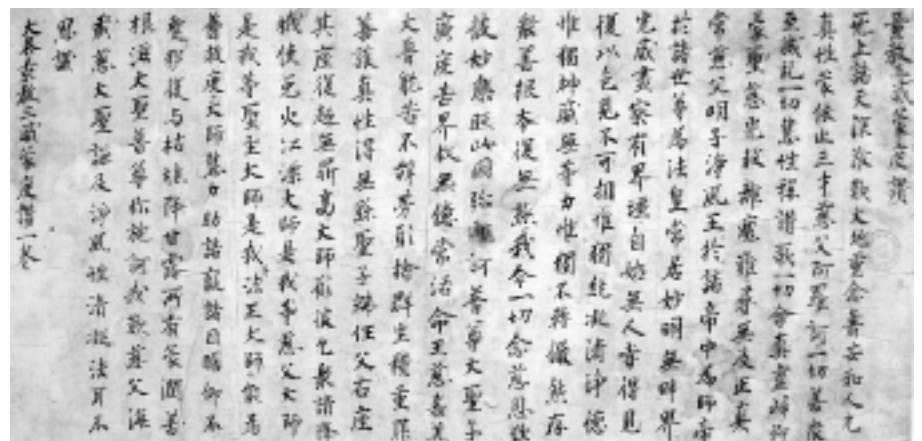 景教三威蒙度讚
无上諸天深敬歎大地重念普安和人元
真性蒙依止三才慈父阿羅訶一切善眾
至誠礼一切慧性稱讚歌一切含真盡歸仰
蒙聖慈光救離魔難尋无及正真
常慈父明子淨風王於諸帝中為師帝
於諸世尊為法皇常居妙明無畔界
光威盡察有界疆自始無人嘗得見
復以色見不可相惟獨絕凝清淨德
惟獨神威無等力惟獨不轉儼然存
眾善根本復無極我今一切念慈恩歎
彼妙樂照此國弥施訶普尊大聖子
廣度苦界救無億常活命王慈喜羔
大普耽苦不辭勞願捨群生積重罪
善護真性得無繇聖子端任父右座
其座復超無鼎高大師願彼乞眾請降
栰使免火江漂大師是我等慈父大師
是我等聖主大師是我法王大師能為
普救度大師慧力助諸羸諸目瞻仰不
蹔移復与枯燋降甘露所有蒙潤善
根滋大聖普尊弥施訶我歎慈父海
藏慈大聖謙及淨風性清凝法耳不
思議
大秦景教三威蒙度讚一卷